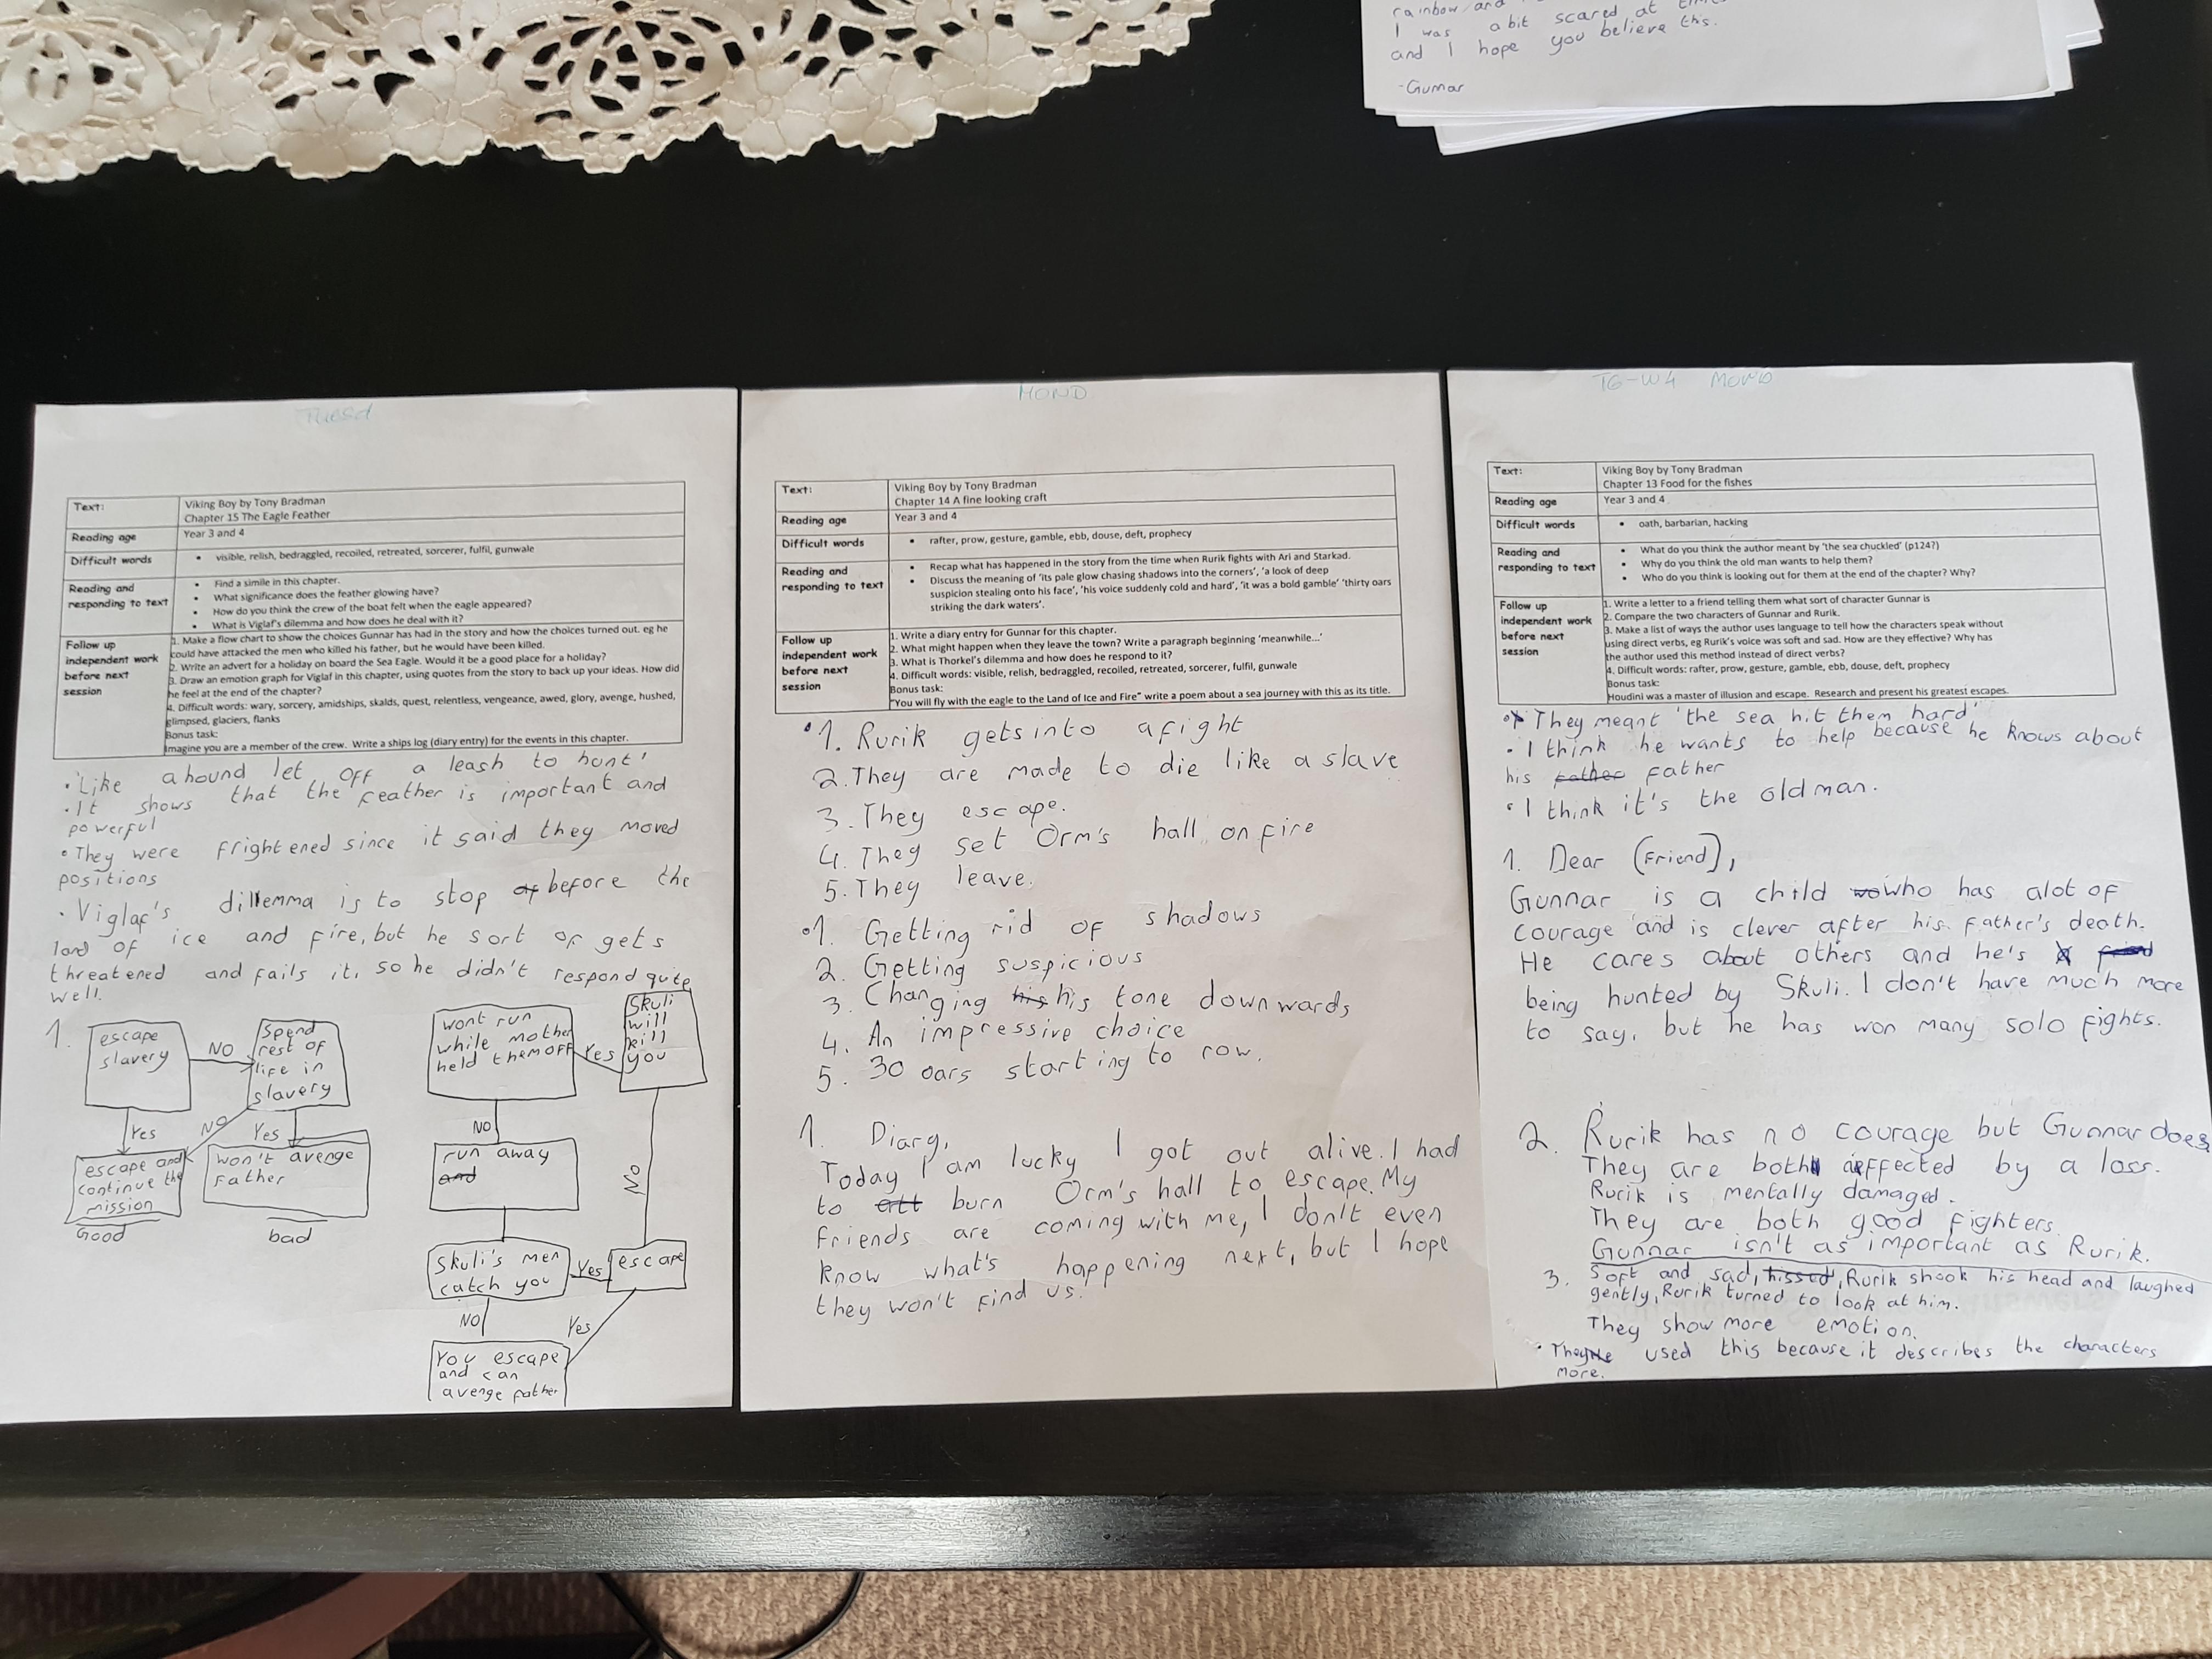 rainbow and
I was a bit scared at
and I hope you believe ths.
-Gumar
Tuesd
Text:
Viking Boy by Tony Bradman
Chapter 15 The Eagle Feather
Reading age
Year 3 and 4
Difficult words
• visible, relish, bedraggled, recoiled, retreated, sorcerer, fulfil, gunwale
Reading and
responding to text
• Find a simile in this chapter.
• What significance does the feather glowing have?
• How do you think the crew of the boat felt when the eagle appeared?
• What is Viglaf's dilemma and how does he deal with it?
Follow up
independent work
before next
session
1. Make a flow chart to show the choices Gunnar has had in the story and how the choices turned out. eg he
could have attacked the men who killed his father, but he would have been killed.
2. Write an advert for a holiday on board the Sea Eagle. Would it be a good place for a holiday?
3. Draw an emotion graph for Viglaf in this chapter, using quotes from the story to back up your ideas. How did
he feel at the end of the chapter?
4. Difficult words: wary, sorcery, amidships, skalds, quest, relentless, vengeance, awed, glory, avenge, hushed,
glimpsed, glaciers, flanks
Bonus task:
Imagine you are a member of the crew. Write a ships log (diary entry) for the events in this chapter.
• 'Like a hound let off a leash to hunt'
• It shows that the feather is important and
powerful
• They were frightened since it said they moved
positions
• Viglaf's dillemma is to stop before the
land of ice and fire, but he sort of gets
threatened and fails it, so he didn't respond quite
well.
1.
escape
slavery
NO
Spend
rest of
life in
slavery
Yes
NO
Yes
escape and
continue the
mission
Good
won't avenge
Father
bad
wont run
while mother
held them off
Yes
Skuli
will
kill
you
NO
run away
and
NO
Skuli's men
catch you
Yes
escape
NO
Yes
You escape
and can
avenge father
MOND
Text:
Viking Boy by Tony Bradman
Chapter 14 A fine looking craft
Reading age
Year 3 and 4
Difficult words
• rafter, prow, gesture, gamble, ebb, douse, deft, prophecy
Reading and
responding to text
• Recap what has happened in the story from the time when Rurik fights with Ari and Starkad.
• Discuss the meaning of 'its pale glow chasing shadows into the corners', 'a look of deep
suspicion stealing onto his face', 'his voice suddenly cold and hard', 'it was a bold gamble' 'thirty oars
striking the dark waters'.
Follow up
independent work
before next
session
1. Write a diary entry for Gunnar for this chapter.
2. What might happen when they leave the town? Write a paragraph beginning 'meanwhile...'
3. What is Thorkel's dilemma and how does he respond to it?
4. Difficult words: visible, relish, bedraggled, recoiled, retreated, sorcerer, fulfil, gunwale
Bonus task:
"You will fly with the eagle to the Land of Ice and Fire" write a poem about a sea journey with this as its title.
• 1. Rurik gets into a fight
2. They are made to die like a slave
3. They escape.
4. They set Orm's hall on fire
5. They leave.
• 1. Getting rid of shadows
2. Getting suspicious
3. Changing his his tone downwards
4. An impressive choice
5. 30 oars starting to row.
1. Diary,
Today I am lucky I got out alive. I had
to burn Orm's hall to escape. My
friends are coming with me, I don't even
know what's happening next, but I hope
they won't find us.
T6-W4 MOND
Text:
Viking Boy by Tony Bradman
Chapter 13 Food for the fishes
Reading age
Year 3 and 4
Difficult words
• oath, barbarian, hacking
Reading and
responding to text
• What do you think the author meant by 'the sea chuckled' (p124?)
• Why do you think the old man wants to help them?
• Who do you think is looking out for them at the end of the chapter? Why?
Follow up
independent work
before next
session
1. Write a letter to a friend telling them what sort of character Gunnar is
2. Compare the two characters of Gunnar and Rurik.
3. Make a list of ways the author uses language to tell how the characters speak without
using direct verbs, eg Rurik's voice was soft and sad. How are they effective? Why has
the author used this method instead of direct verbs?
4. Difficult words: rafter, prow, gesture, gamble, ebb, douse, deft, prophecy
Bonus task:
Houdini was a master of illusion and escape. Research and present his greatest escapes.
• They meant 'the sea hit them hard'
• I think he wants to help because he knows about
his father father
• I think it's the old man.
1. Dear (Friend),
Gunnar is a child wo who has alot of
courage and is clever after his father's death.
He cares about others and he's
being hunted by Skuli. I don't have much more
to say, but he has won many solo fights.
2. Rurik has no courage but Gunnar does
They are both affected by a loss.
Rurik is mentally damaged.
They are both good fighters
Gunnar isn't as important as Rurik.
3. Soft and sad, hissed, Rurik shook his head and laughed
gently, Rurik turned to look at him.
They show more emotion.
• They used this because it describes the characters
more.